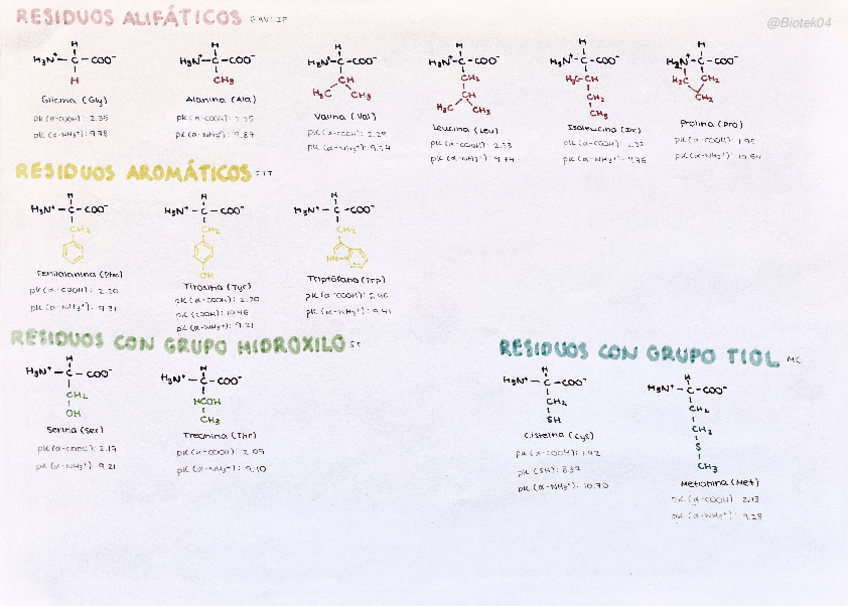 RESIDUOS ALIFÁTICOS
@Biotek04
H
H₃N⁺ — C — COO⁻
H
Glicina (Gly)
pK (α-COOH): 2.35
pK (α-NH₃⁺): 9.78
H
H₃N⁺ — C — COO⁻
CH₃
Alanina (Ala)
pK (α-COOH): 2.35
pK (α-NH₃⁺): 9.87
H
H₃N⁺ — C — COO⁻
CH
H₃C CH₃
Valina (Val)
pK (α-COOH): 2.29
pK (α-NH₃⁺): 9.74
H
H₃N⁺ — C — COO⁻
CH₂
CH
H₃C CH₃
Leucina (Leu)
pK (α-COOH): 2.33
pK (α-NH₃⁺): 9.74
H
H₃N⁺ — C — COO⁻
H₃C CH
CH₂
CH₃
Isoleucina (Ile)
pK (α-COOH):
pK (α-NH₃⁺): 9.76
H
H₂N⁺ — C — COO⁻
H₂C CH₂
CH₂
Prolina (Pro)
pK (α-COOH): 1.95
pK (α-NH₃⁺): 10.64
RESIDUOS AROMÁTICOS
H
H₃N⁺ — C — COO⁻
CH₂
Fenilalanina (Phe)
pK (α-COOH): 2.20
pK (α-NH₃⁺): 9.31
H
H₃N⁺ — C — COO⁻
CH₂
OH
Tirosina (Tyr)
pK (α-COOH): 2.20
pK 10.46
pK (α-NH₃⁺): 9.21
H
H₃N⁺ — C — COO⁻
CH₂
HN
Triptófano (Trp)
pK (α-COOH): 2.46
pK (α-NH₃⁺): 9.41
RESIDUOS CON GRUPO HIDROXILO ST
H
H₃N⁺ — C — COO⁻
CH₂
OH
Serina (Ser)
pK (α-COOH): 2.19
pK (α-NH₃⁺): 9.21
H
H₃N⁺ — C — COO⁻
HCOH
CH₃
Treonina (Thr)
pK (α-COOH): 2.09
pK (α-NH₃⁺): 9.10
RESIDUOS CON GRUPO TIOL MC
H
H₃N⁺ — C — COO⁻
CH₂
SH
Cisteína (Cys)
pK (α-COOH): 1.92
pK (SH): 8.37
pK (α-NH₃⁺): 10.70
H
H₃N⁺ — C — COO⁻
CH₂
CH₂
S
CH₃
Metionina (Met)
pK (α-COOH) 2.13
pK (α-NH₃⁺): 9.28